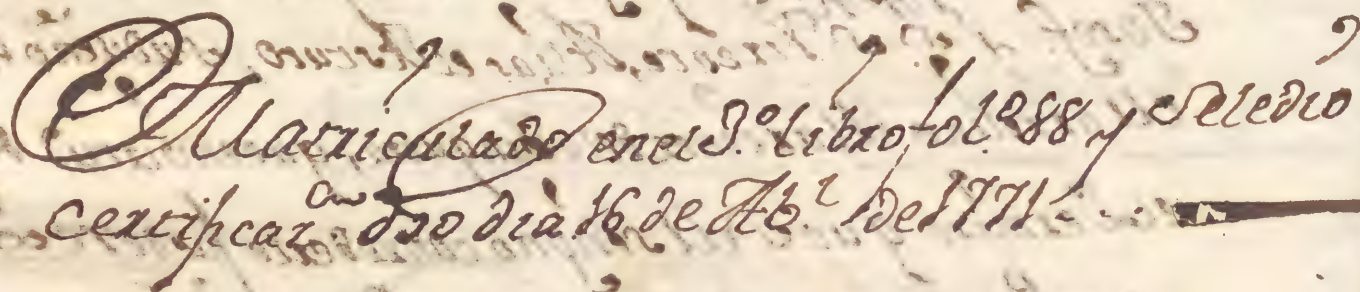 Matriculado en el 3.º libro, fol.º 88 y Se le dio
certificaz.on dho dia 16 de Ab.l de 1771